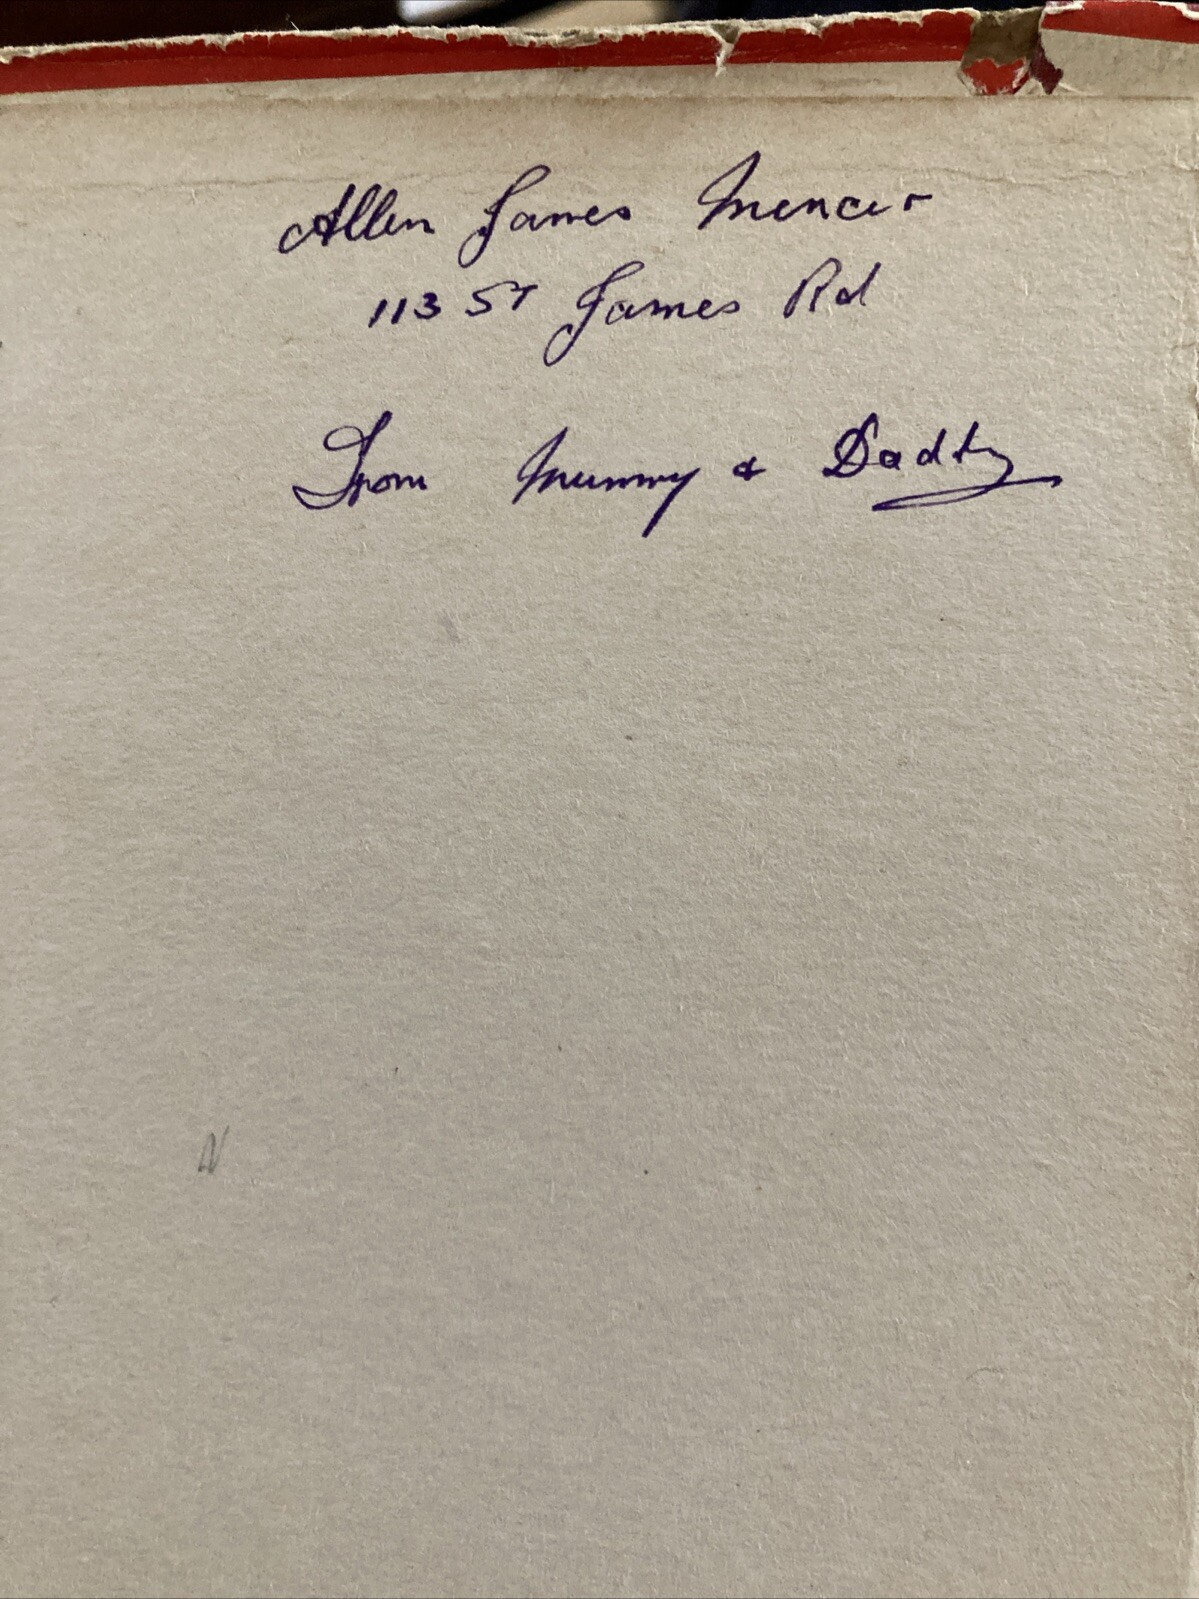 Allen James Mencer
113 ST James Rd
From Mummy & Daddy
N